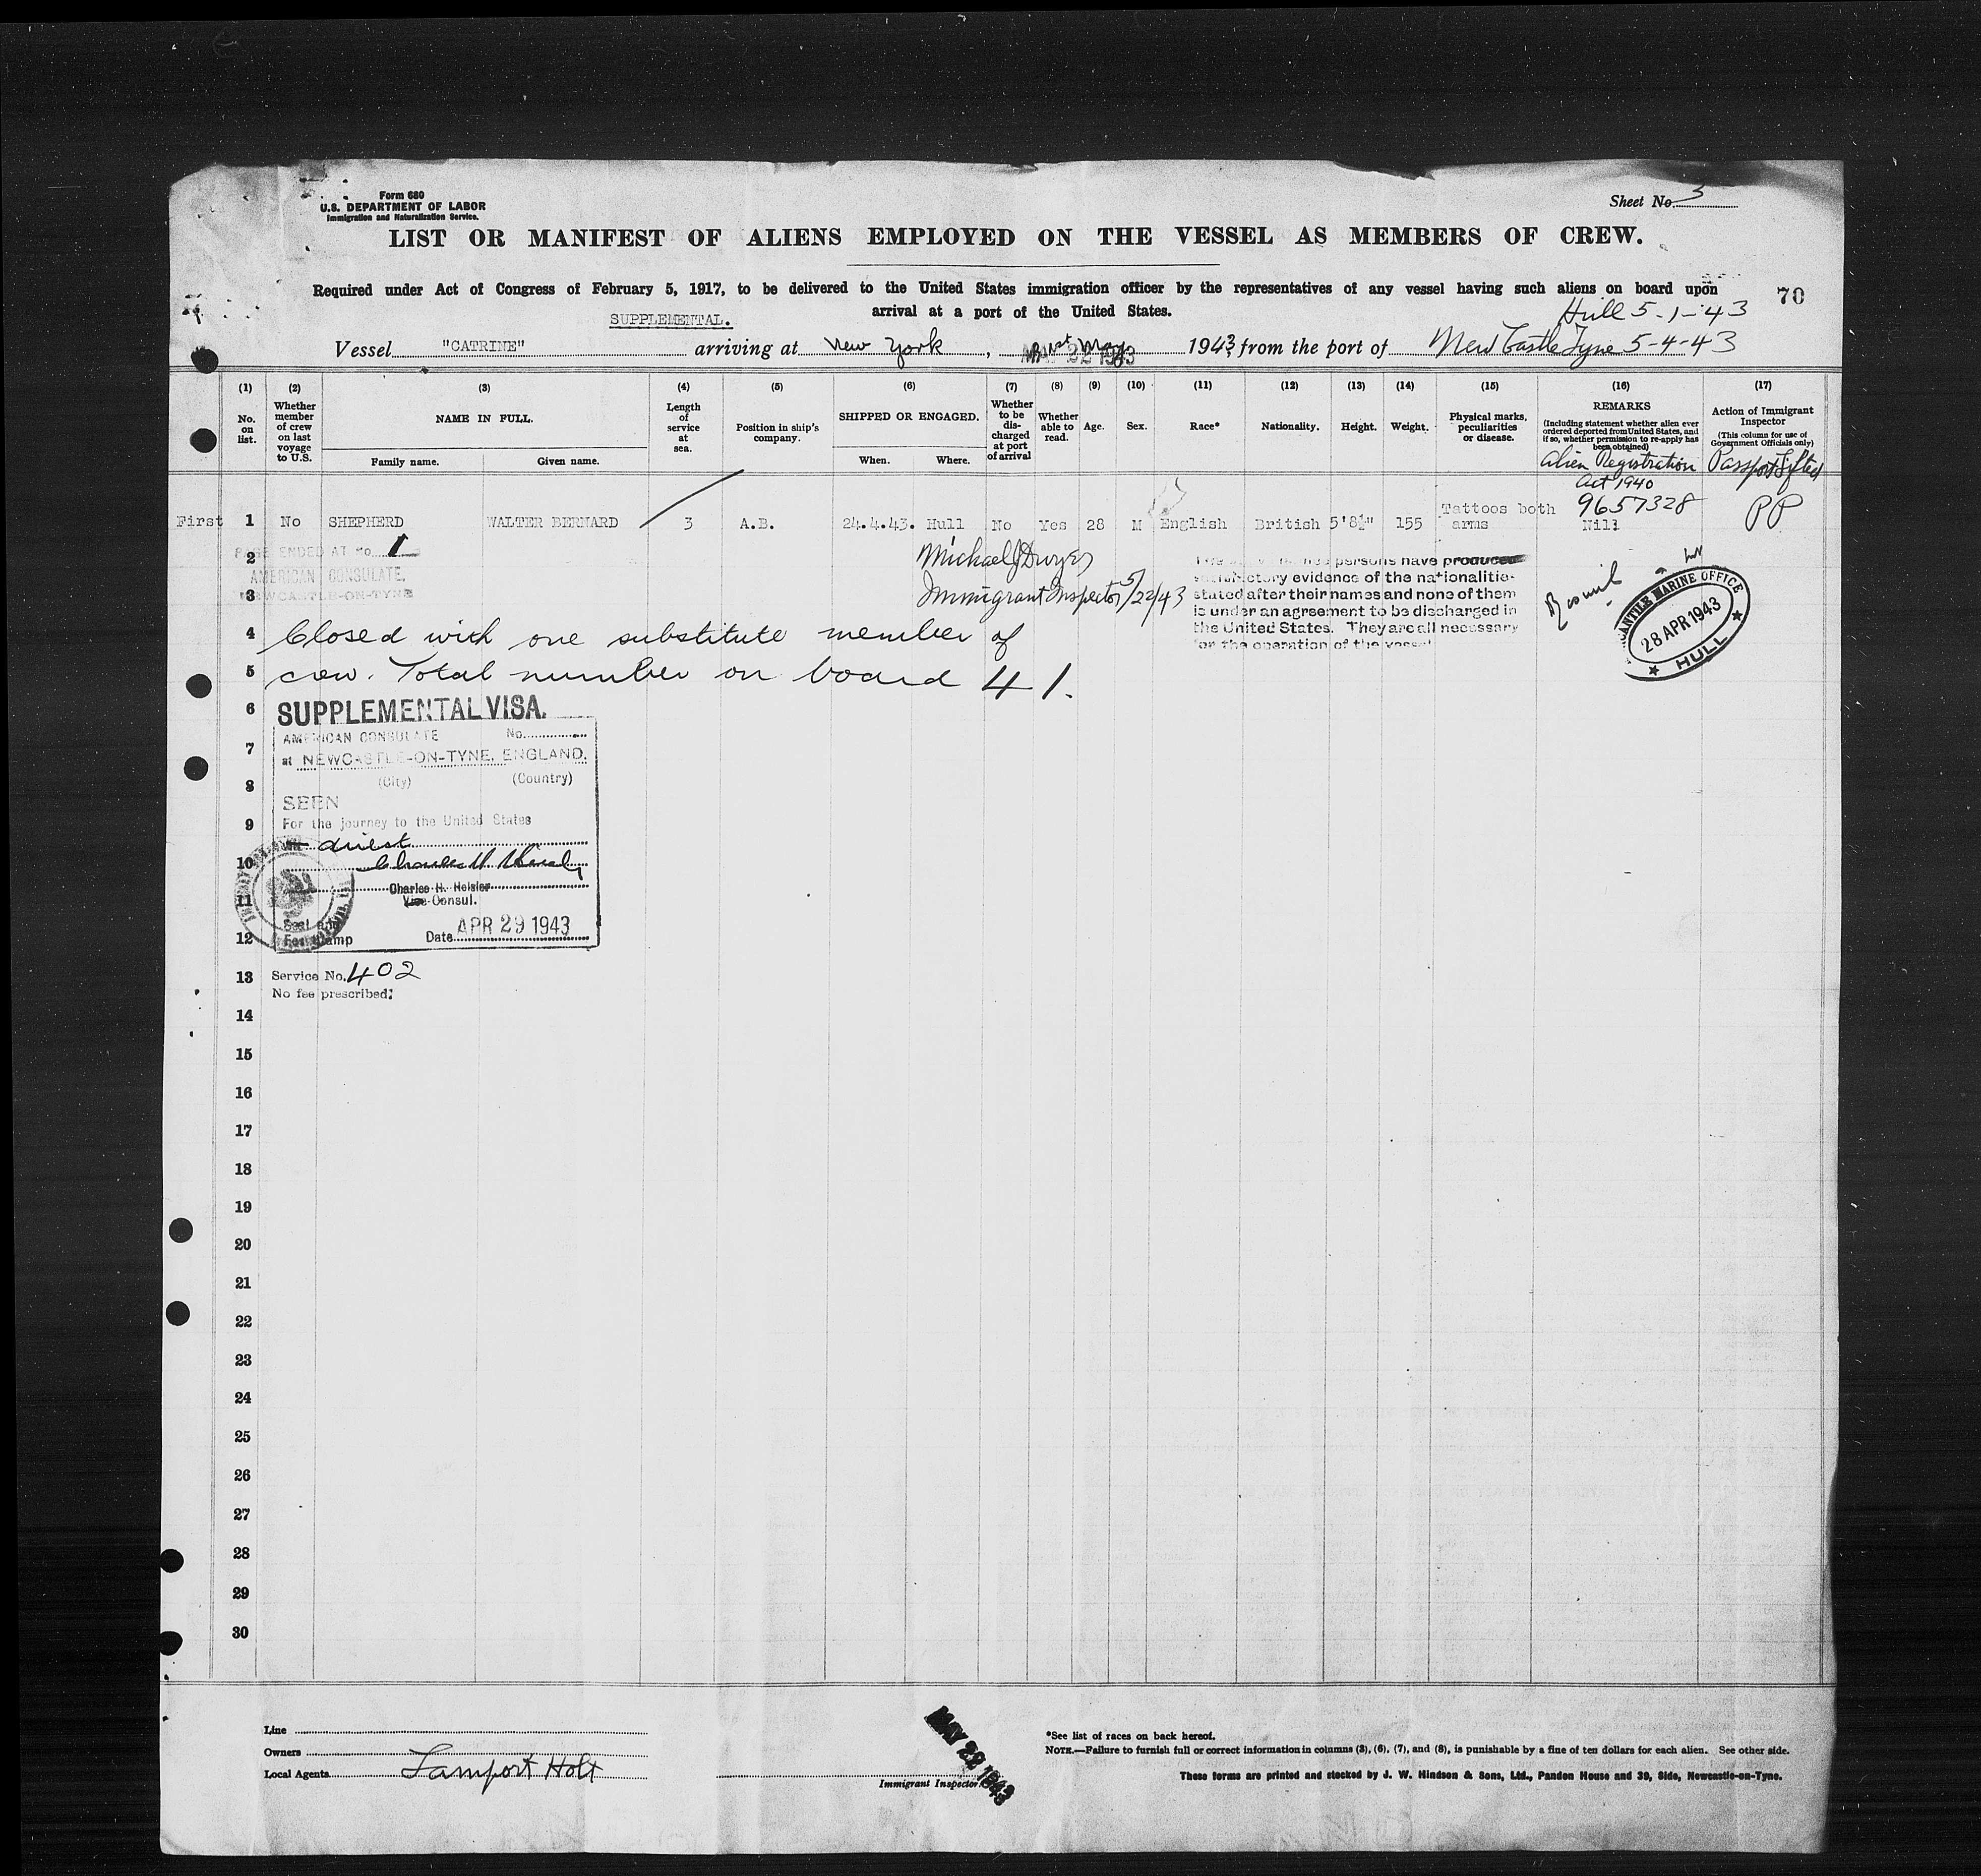 Form 680
U.S. DEPARTMENT OF LABOR
Immigration and Naturalization Service.
Sheet No. 3
LIST OR MANIFEST OF ALIENS EMPLOYED ON THE VESSEL AS MEMBERS OF CREW.
Required under Act of Congress of February 5, 1917, to be delivered to the United States immigration officer by the representatives of any vessel having such aliens on board upon
arrival at a port of the United States.
70
SUPPLEMENTAL.
Hull 5-1-43
Vessel "CATRINE" arriving at New York, MAY 22 1943 1943 from the port of New Castle Tyne 5-4-43
(1) (2) (3) (4) (5) (6) (7) (8) (9) (10) (11) (12) (13) (14) (15) (16) (17)
No. on list.
Whether member of crew on last voyage to U.S.
NAME IN FULL.
Family name. Given name.
Length of service at sea.
Position in ship's company.
SHIPPED OR ENGAGED.
When. Where.
Whether to be discharged at port of arrival
Whether able to read.
Age.
Sex.
Race*
Nationality.
Height.
Weight.
Physical marks, peculiarities or disease.
REMARKS
(Including statement whether alien ever ordered deported from United States, and if so, whether permission to re-apply has been obtained)
Action of Immigrant Inspector
(This column for use of Government Officials only)
Alien Registration Act 1940
Passport Lifted
First 1 No SHEPHERD WALTER BERNARD 3 A.B. 24.4.43. Hull No Yes 28 M English British 5'8½" 155 Tattoos both arms 9657328 Nil PP
2
PAGE ENDED AT No 1
AMERICAN CONSULATE,
NEWCASTLE-ON-TYNE
3
Michael J Dwyer
Immigrant Inspector 5/22/43
persons have produced
satisfactory evidence of the nationalitie-
stated after their names and none of them
is under an agreement to be discharged in
the United States. They are all necessary
for the operation of the vessel
MERCANTILE MARINE OFFICE
28 APR 1943
HULL
4 Closed with one substitute member of
5 crew. Total number on board 41.
6 SUPPLEMENTAL VISA.
7 AMERICAN CONSULATE No.
at NEWCASTLE-ON-TYNE, ENGLAND.
8 (City) (Country)
SEEN
9 For the journey to the United States
direct
10
Charles H. Heisler
11 Vice Consul.
Seal and
12 Fee Stamp Date APR 29 1943
13 Service No. 402
No fee prescribed.
14
15
16
17
18
19
20
21
22
23
24
25
26
27
28
29
30
Line
Owners
Local Agents Lamport Holt
MAY 22 1943
Immigrant Inspector
*See list of races on back hereof.
NOTE.—Failure to furnish full or correct information in columns (3), (6), (7), and (8), is punishable by a fine of ten dollars for each alien. See other side.
These forms are printed and stocked by J. W. Hindson & Sons, Ltd., Pandon House and 39, Side, Newcastle-on-Tyne.